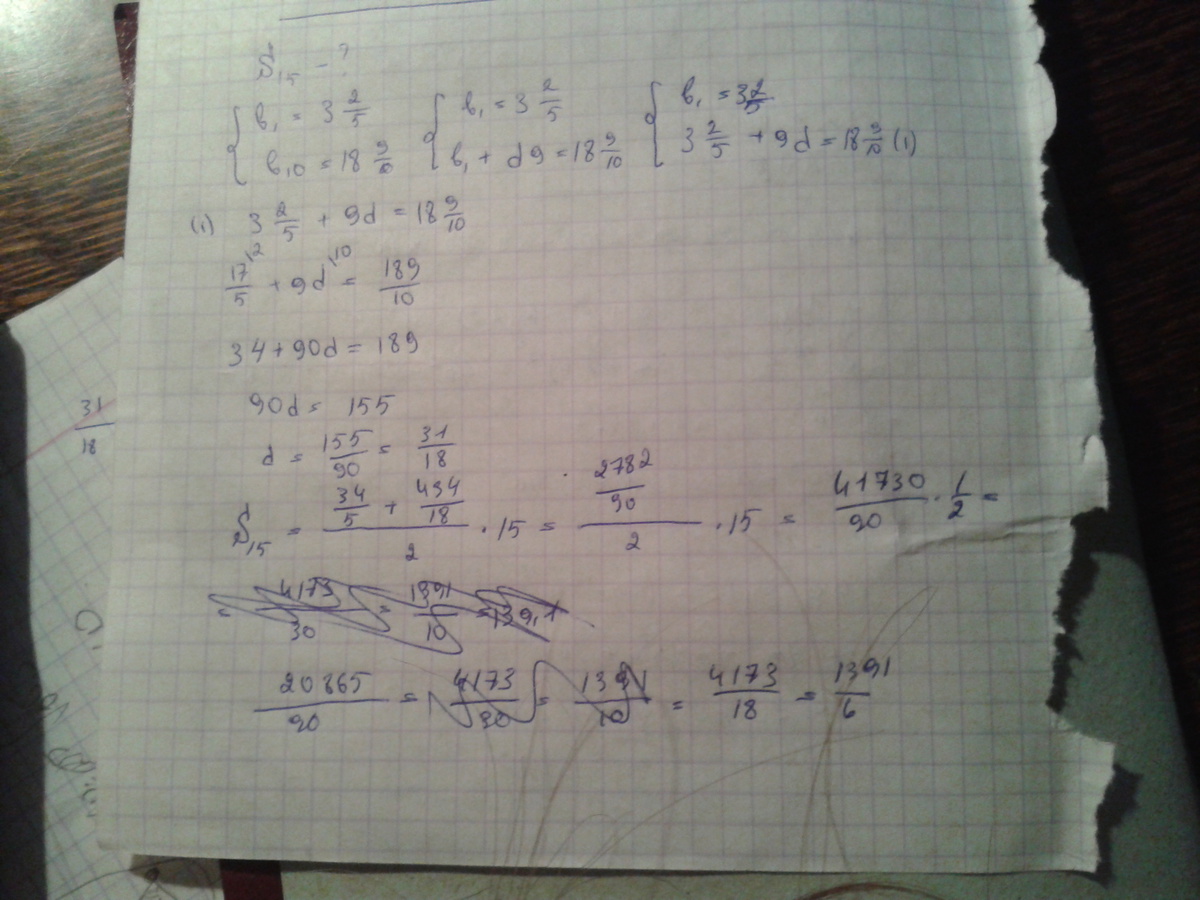 S₁₅ - ?
{ b₁ = 3 2/5 { b₁ = 3 2/5 { b₁ = 3 2/5
b₁₀ = 18 9/10 b₁ + d9 = 18 9/10 3 2/5 + 9d = 18 9/10 (1)
(1) 3 2/5 + 9d = 18 9/10
17/5 \2 + 9d \10 = 189/10
34 + 90d = 189
90d = 155
d = 155/90 = 31/18
S₁₅ = (34/5 + 434/18)/2 · 15 = (2782/90)/2 · 15 = 41730/90 · 1/2 =
= 4173/30 = 1391/10 = 139,1
20865/90 = 4173/90 = 1391/10 = 4173/18 = 1391/6
31/18